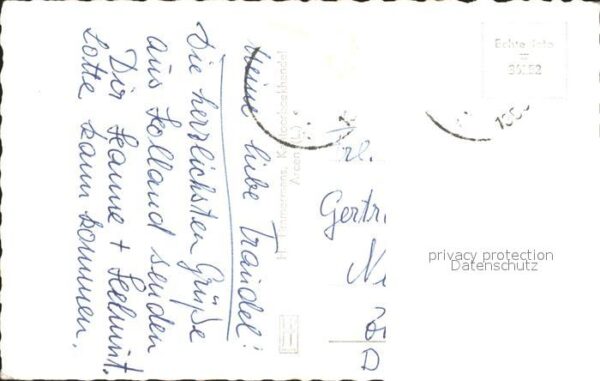 Meine liebe Traudel!
Die herzlichsten Grüße
aus Holland senden
Dir Hanne + Helmut.
Lotte kann kommen.
H. Kantoorboekhandel
Arcen (L)
Echte Foto
Frl.
Gertr
D
privacy protection
Datenschutz